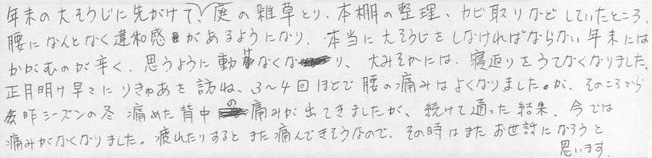 年末の大そうじに先がけて、庭の雑草とり、本棚の整理、カビ取りなどしていたところ、
腰になんとなく違和感があるようになり、本当に大そうじをしなければならない年末には
かがむのが辛く、思うように動けなくなり、大みそかには、寝返りをうてなくなりました。
正月明け早々にりきゅあを訪ね、3〜4回ほどで腰の痛みはよくなりました。が、そのころから
昨シーズンの冬痛めた背中の痛みが出てきましたが、続けて通った結果、今では
痛みがなくなりました。疲れたりするとまた痛んできそうなので、その時はまたお世話になろうと
思います。